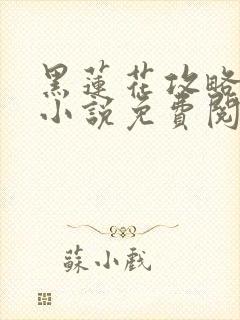 黑蓮花攻略
小說免費閱
蘇小戲